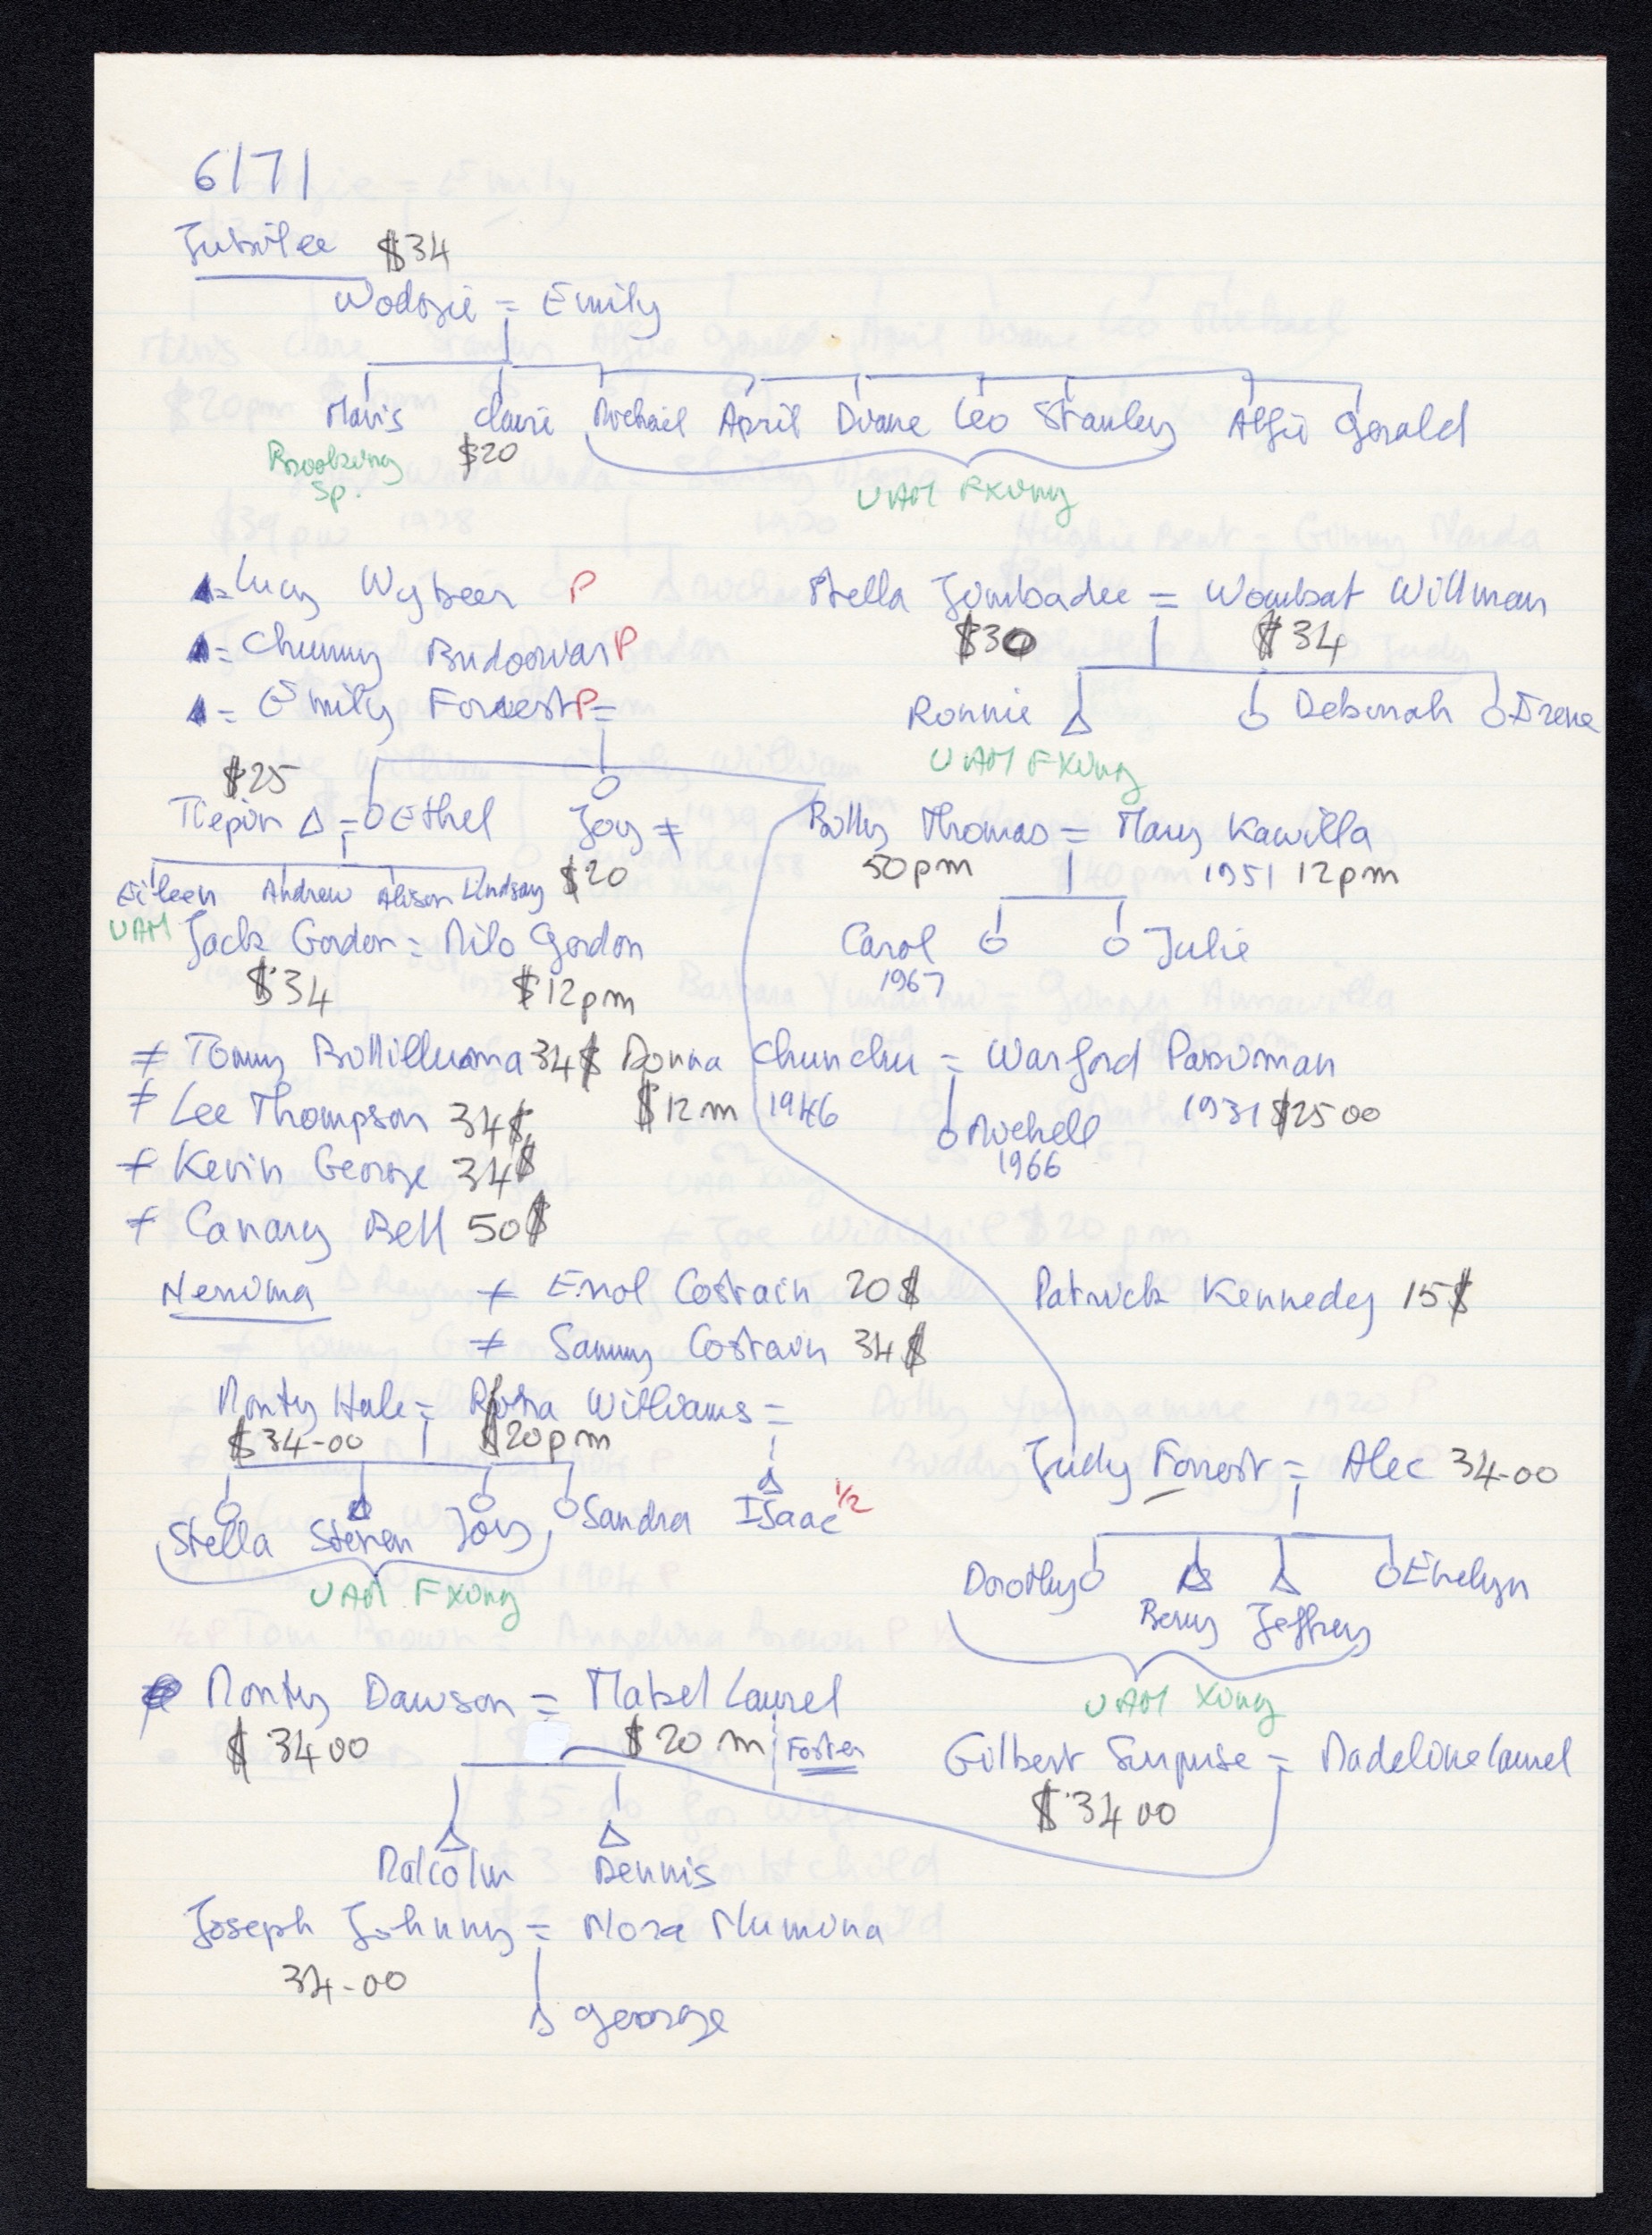 6/71
Jubilee $34
Wodgie = Emily
Mavis Claire Michael April Diane Leo Stanley Alfie Gerald
Brooking Sp. $20 UAM FXing
= Lucy Wybeer P
= Chummy Budoowar P
= Emily Forrest P =
Stella Jumbadee = Wombat Willman
$30 $34
Ronnie Deborah Irene
UAM FXing
$25
Tiepin = Ethel Joy ≠
$20
Eileen Andrew Alison Lindsay
UAM
Billy Thomas = Mary Kawilla
50pm 1951 12pm
Carol Julie
1967
Jack Gordon = Milo Gordon
$34 $12pm
≠ Tommy 34$
≠ Lee Thompson 34$
≠ Kevin George 34$
≠ Canary Bell 50$
Donna Chunchu = Warford
$12m 1946 1931 $25 00
Michell
1966
Nerrima ≠ Errol Costain 20$ Patrick Kennedy 15$
≠ Sammy Costain 34$
Monty Hale = Williams =
$34-00 $20pm
Stella Steven Joy Sandra Isaac 1/2
UAM FXing
Judy Forrest = Alec 34-00
Dorothy Jeffrey Evelyn
UAM Xing
Monty Dawson = Mabel Laurel
$34 00 $20 m Foster
Malcolm Dennis
Gilbert Surprise = Madeline Laurel
$34 00
Joseph Johnny = Nora
34-00
George